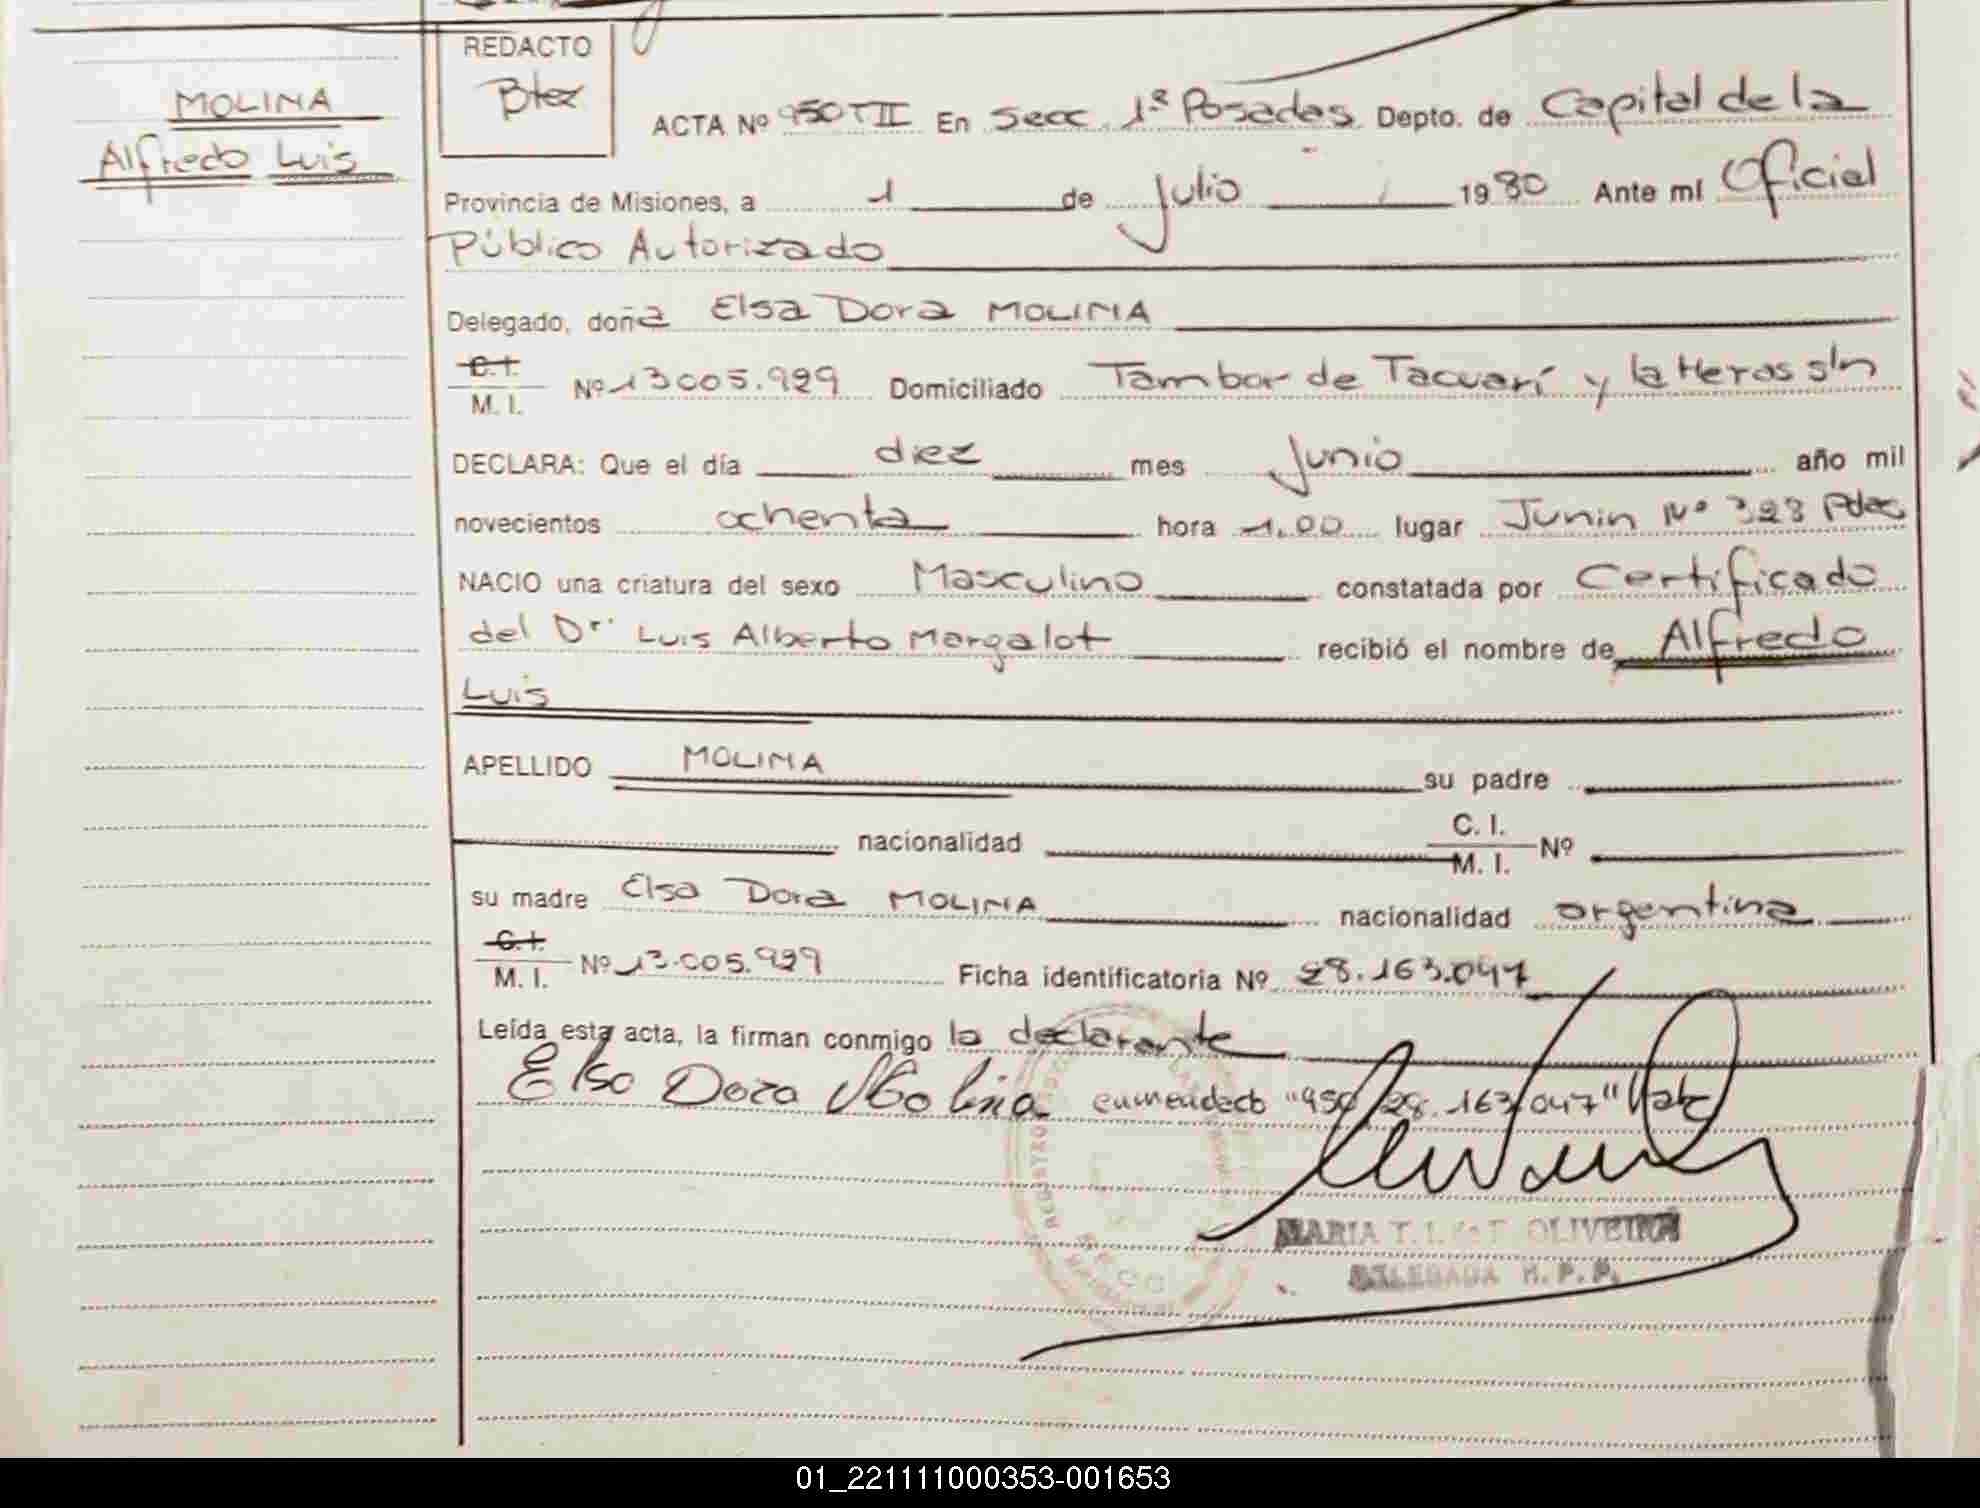 REDACTO
Btez
MOLINA
Alfredo Luis
ACTA Nº 950 T II En Secc. 1ª Posadas Depto. de Capital de la
Provincia de Misiones, a 1 de Julio 1980 Ante mí Oficial
Público Autorizado
Delegado, doña Elsa Dora MOLINA
C.I. M. I. Nº 13.005.929 Domiciliado Tambor de Tacuarí y las Heras s/n
DECLARA: Que el día diez mes Junio año mil
novecientos ochenta hora 1.00 lugar Junin Nº 323 Pdas
NACIO una criatura del sexo Masculino constatada por Certificado
del Dr. Luis Alberto Margalot recibió el nombre de Alfredo
Luis
APELLIDO MOLINA su padre
nacionalidad C. I. M. I. Nº
su madre Elsa Dora MOLINA nacionalidad argentina
C.I. M. I. Nº 13.005.929 Ficha identificatoria Nº 28.163.047
Leída esta acta, la firman conmigo la declarante
Elsa Dora Molina enmendado "950/28.163.047" Vale
MARIA T. OLIVEIRA
DELEGADA R. P. P.
01_221111000353-001653